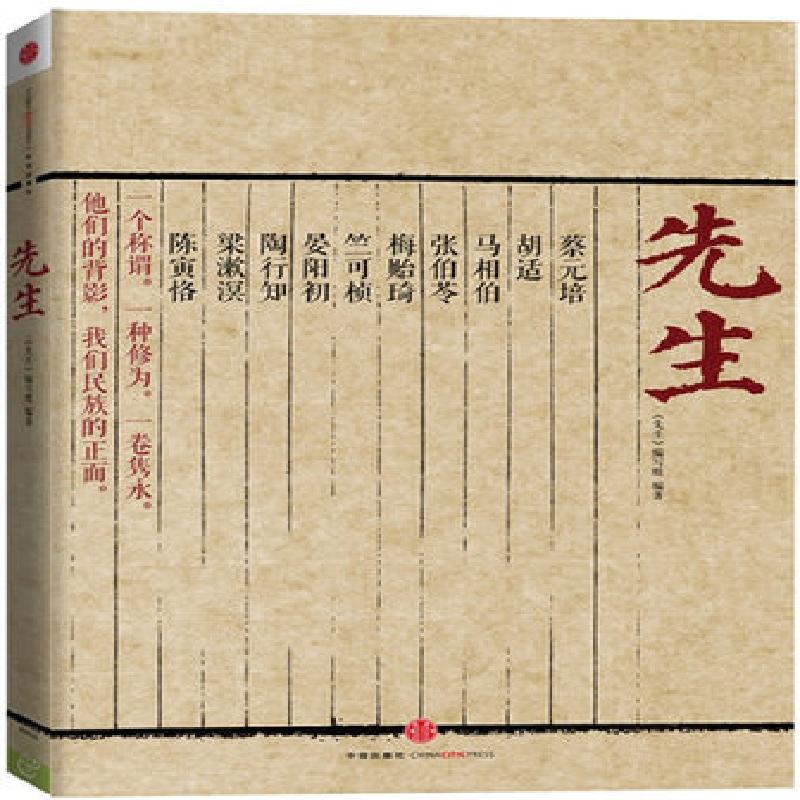 先生
《先生》编写组 编著
蔡元培
胡适
马相伯
张伯苓
梅贻琦
竺可桢
晏阳初
陶行知
梁漱溟
陈寅恪
一个称谓。一种修为。一卷隽永。
他们的背影，我们民族的正面。
中信出版社·CHINA CITIC PRESS
先生
《先生》编写组 编著